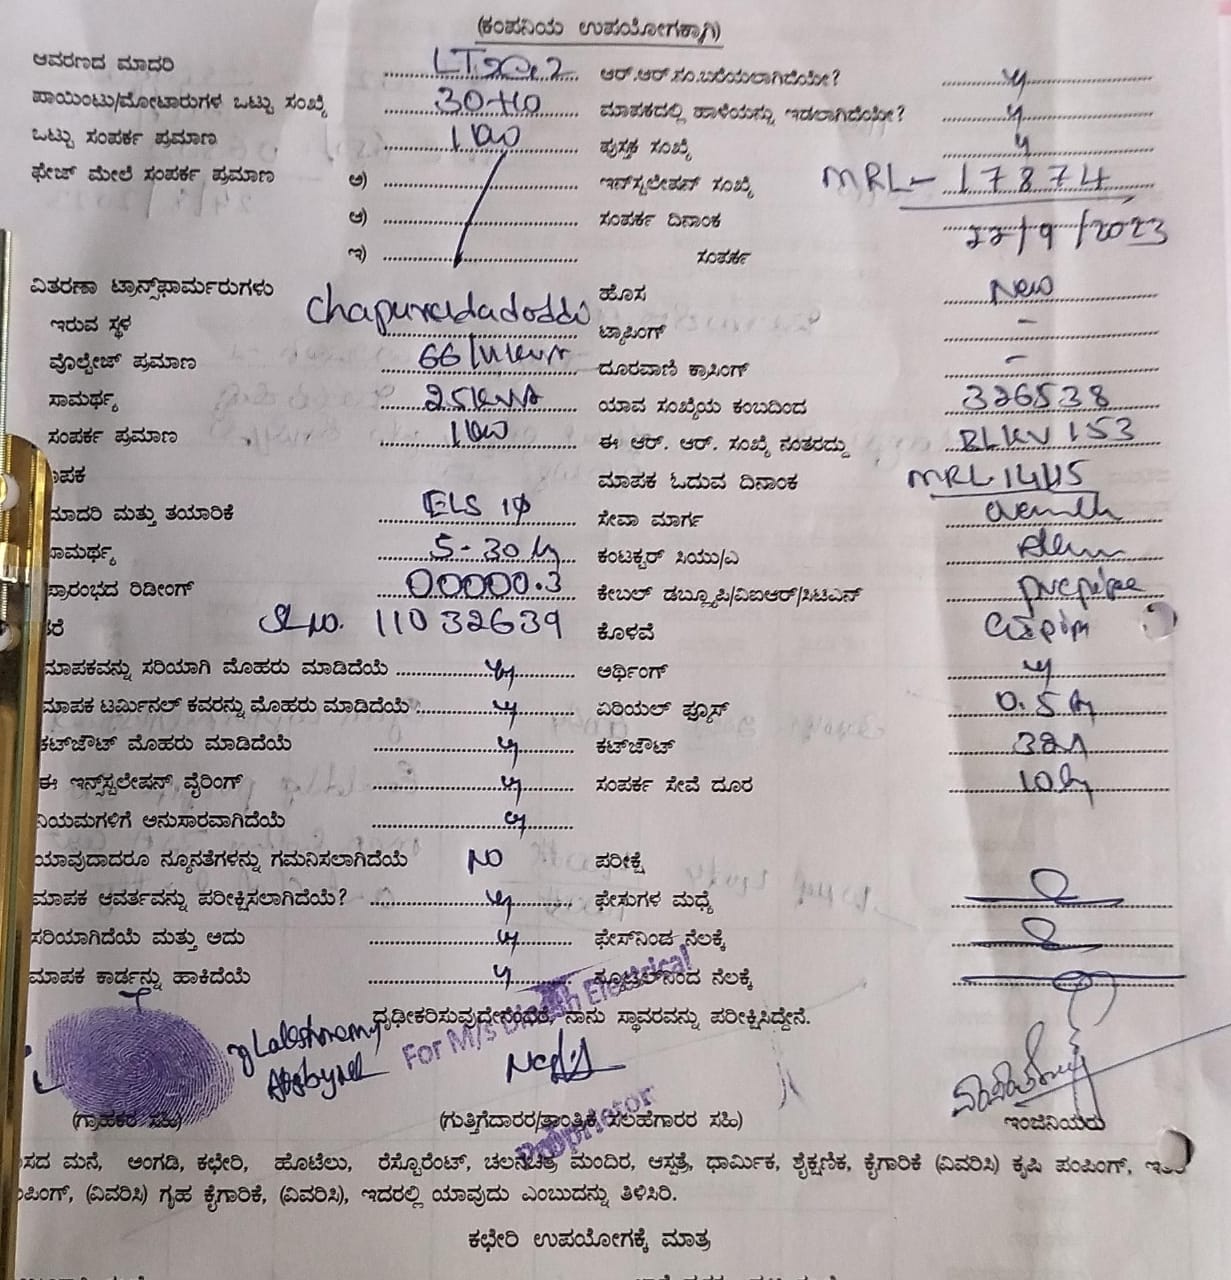 (ಕಂಪನಿಯ ಉಪಯೋಗಕ್ಕಾಗಿ)
ಆವರಣದ ಮಾದರಿ ಆರ್.ಆರ್.ಸಂ.ಬರೆಯಲಾಗಿದೆಯೇ? y
ಪಾಯಿಂಟು/ಮೋಟಾರುಗಳ ಒಟ್ಟು ಸಂಖ್ಯೆ 30+10 ಮಾಪಕದಲ್ಲಿ ಹಾಳೆಯನ್ನು ಇಡಲಾಗಿದೆಯೇ? y
ಒಟ್ಟು ಸಂಪರ್ಕ ಪ್ರಮಾಣ 1 kw ಪುಸ್ತಕ ಸಂಖ್ಯೆ y
ಫೇಜ್ ಮೇಲೆ ಸಂಪರ್ಕ ಪ್ರಮಾಣ ಅ) ಇನ್‌ಸ್ಟಲೇಷನ್ ಸಂಖ್ಯೆ MRL-17874
ಆ) ಸಂಪರ್ಕ ದಿನಾಂಕ /9/2023
ಇ) ಸಂಪರ್ಕ
ವಿತರಣಾ ಟ್ರಾನ್ಸ್‌ಫಾರ್ಮರುಗಳು ಹೊಸ New
ಇರುವ ಸ್ಥಳ ಟ್ಯಾಪಿಂಗ್ -
ವೊಲ್ಟೇಜ್ ಪ್ರಮಾಣ ದೂರವಾಣಿ ಕ್ರಾಸಿಂಗ್ -
ಸಾಮರ್ಥ್ಯ 25kVA ಯಾವ ಸಂಖ್ಯೆಯ ಕಂಬದಿಂದ 326538
ಸಂಪರ್ಕ ಪ್ರಮಾಣ 1kw ಈ ಆರ್. ಆರ್. ಸಂಖ್ಯೆ ನಂತರದ್ದು 153
ಾಪಕ ಮಾಪಕ ಓದುವ ದಿನಾಂಕ
ಮಾದರಿ ಮತ್ತು ತಯಾರಿಕೆ ELS 1φ ಸೇವಾ ಮಾರ್ಗ
ಸಾಮರ್ಥ್ಯ 5-30 A ಕಂಟಕ್ಟರ್ ಸಿಯು/ಎ
ಪ್ರಾರಂಭದ ರಿಡೀಂಗ್ 00000.3 ಕೇಬಲ್ ಡಬ್ಲ್ಯೂಪಿ/ವಿಐಆರ್/ಸಿಟಿಎನ್
ತರೆ Sl no. 11032639 ಕೊಳವೆ
ಮಾಪಕವನ್ನು ಸರಿಯಾಗಿ ಮೊಹರು ಮಾಡಿದೆಯೆ y ಆರ್ಥಿಂಗ್ y
ಮಾಪಕ ಟರ್ಮಿನಲ್ ಕವರನ್ನು ಮೊಹರು ಮಾಡಿದೆಯೆ y ಏರಿಯಲ್ ಫ್ಯೂಸ್ 0.5
ಕಟ್‌ಔಟ್ ಮೊಹರು ಮಾಡಿದೆಯೆ y ಕಟ್‌ಔಟ್ 32A
ಈ ಇನ್ಸ್‌ಸ್ಟಲೇಷನ್ ವೈರಿಂಗ್ y ಸಂಪರ್ಕ ಸೇವೆ ದೂರ 10
ನಿಯಮಗಳಿಗೆ ಅನುಸಾರವಾಗಿದೆಯೆ y
ಯಾವುದಾದರೂ ನ್ಯೂನತೆಗಳನ್ನು ಗಮನಿಸಲಾಗಿದೆಯೆ NO ಪರೀಕ್ಷೆ
ಮಾಪಕ ಆವರ್ತವನ್ನು ಪರೀಕ್ಷಿಸಲಾಗಿದೆಯೆ? y ಫೇಸುಗಳ ಮಧ್ಯೆ
ಸರಿಯಾಗಿದೆಯೆ ಮತ್ತು ಅದು y ಫೇಸ್‌ನಿಂದ ನೆಲಕ್ಕೆ
ಮಾಪಕ ಕಾರ್ಡನ್ನು ಹಾಕಿದೆಯೆ y ನ್ಯೂಟ್ರಲ್‌ನಿಂದ ನೆಲಕ್ಕೆ
ದೃಢೀಕರಿಸುವುದೇನೆಂದರೆ, ನಾನು ಸ್ಥಾವರವನ್ನು ಪರೀಕ್ಷಿಸಿದ್ದೇನೆ.
For M/s Electrical
Proprietor
(ಗ್ರಾಹಕರ ಸಹಿ) (ಗುತ್ತಿಗೆದಾರರ/ತಾಂತ್ರಿಕ ಸಲಹೆಗಾರರ ಸಹಿ) ಇಂಜಿನಿಯರು
ಸದ ಮನೆ, ಅಂಗಡಿ, ಕಛೇರಿ, ಹೊಟೆಲು, ರೆಸ್ಟೊರೆಂಟ್, ಚಲನಚಿತ್ರ ಮಂದಿರ, ಆಸ್ಪತ್ರೆ, ಧಾರ್ಮಿಕ, ಶೈಕ್ಷಣಿಕ, ಕೈಗಾರಿಕೆ (ವಿವರಿಸಿ) ಕೃಷಿ ಪಂಪಿಂಗ್,
ಪಿಂಗ್, (ವಿವರಿಸಿ) ಗೃಹ ಕೈಗಾರಿಕೆ, (ವಿವರಿಸಿ), ಇದರಲ್ಲಿ ಯಾವುದು ಎಂಬುದನ್ನು ತಿಳಿಸಿರಿ.
ಕಛೇರಿ ಉಪಯೋಗಕ್ಕೆ ಮಾತ್ರ